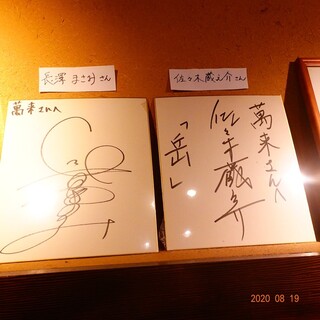 長澤 まさみさん
佐々木蔵之介さん
萬来さんへ
萬来さんへ
佐々木蔵之介
「岳」
2020 08 19